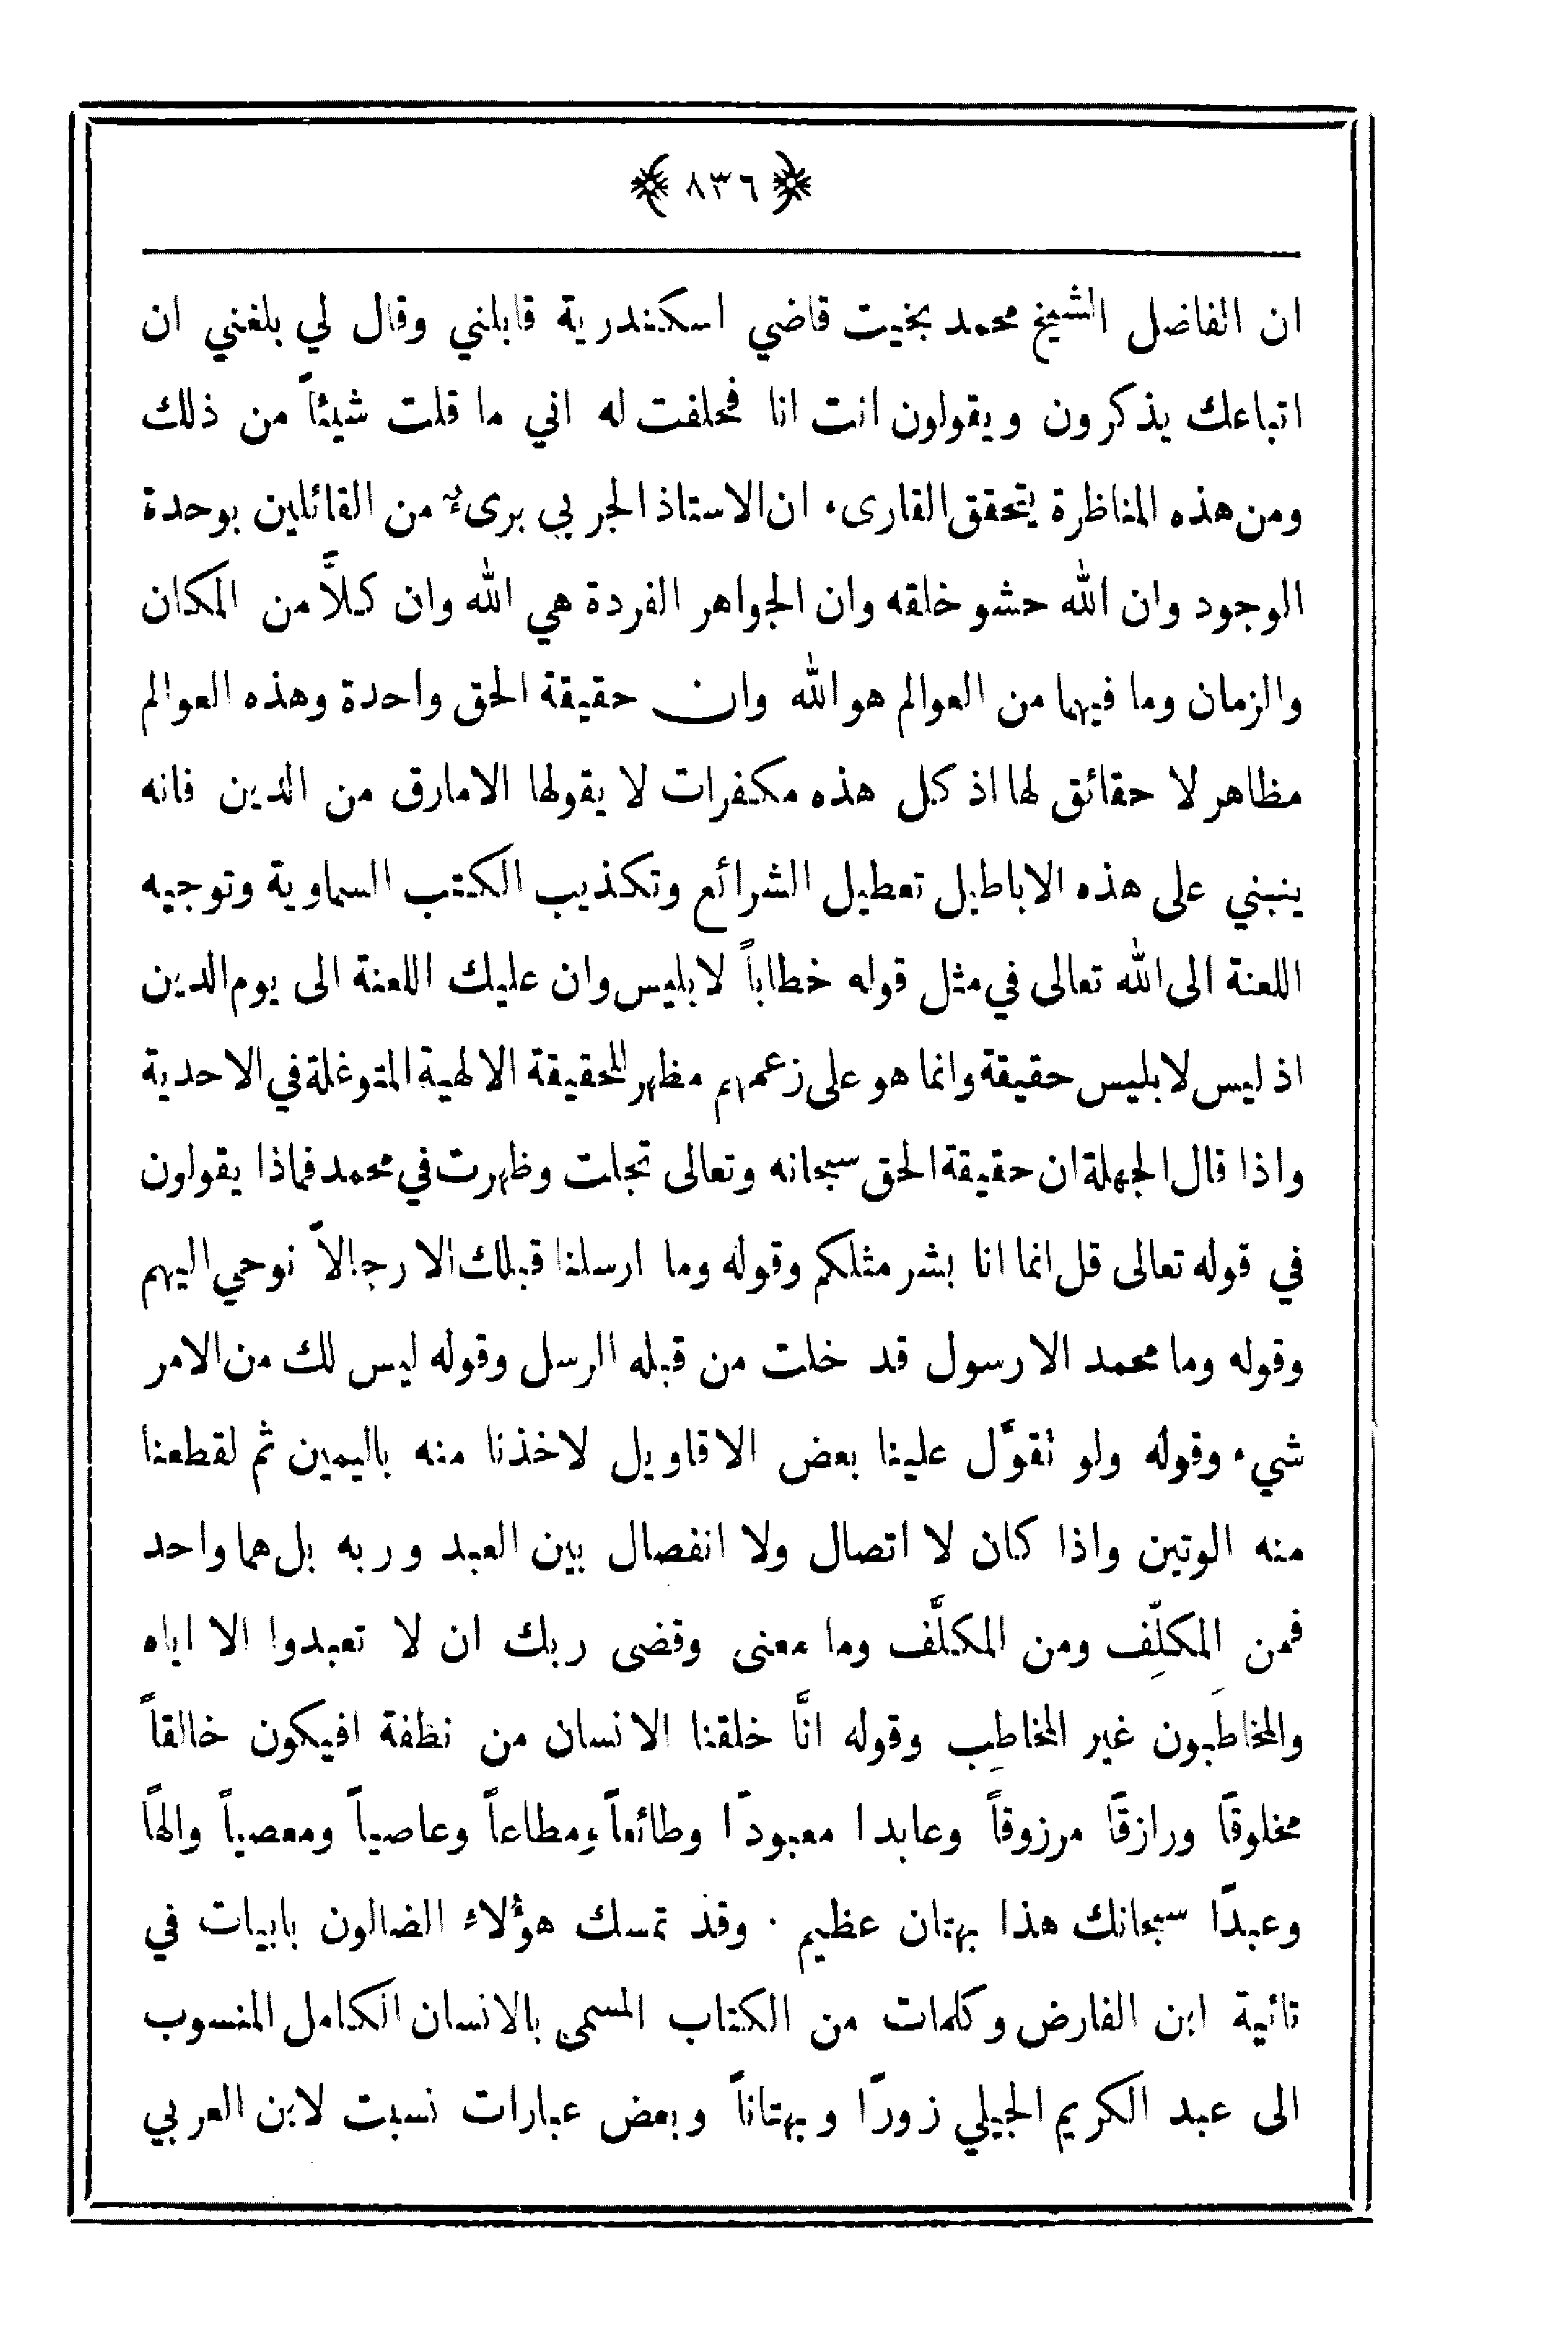 ﴿ ٨٣٦ ﴾
ان الفاضل الشيخ محمد بخيت قاضي اسكندرية قابلني وقال لي بلغني ان
اتباعك يذكرون ويقولون انت انا فحلفت له اني ما قلت شيئاً من ذلك
ومن هذه المناظرة يتحقق القارىء ان الاستاذ الجربي برىء من القائلين بوحدة
الوجود وان الله حشو خلقه وان الجواهر الفردة هي الله وان كلاًّ من المكان
والزمان وما فيهما من العوالم هو الله وان حقيقة الحق واحدة وهذه العوالم
مظاهر لا حقائق لها اذ كل هذه مكفرات لا يقولها الا مارق من الدين فانه
ينبني على هذه الاباطيل تعطيل الشرائع وتكذيب الكتب السماوية وتوجيه
اللعنة الى الله تعالى في مثل قوله خطاباً لابليس وان عليك اللعنة الى يوم الدين
اذ ليس لابليس حقيقة وانما هو على زعمهم مظهر للحقيقة الالهية المتوغلة في الاحدية
واذا قال الجهلة ان حقيقة الحق سبحانه وتعالى تجلت وظهرت في محمد فماذا يقولون
في قوله تعالى قل انما انا بشر مثلكم وقوله وما ارسلنا قبلك الا رجالاً نوحي اليهم
وقوله وما محمد الا رسول قد خلت من قبله الرسل وقوله ليس لك من الامر
شيء وقوله ولو تقوَّل علينا بعض الاقاويل لاخذنا منه باليمين ثم لقطعنا
منه الوتين واذا كان لا اتصال ولا انفصال بين العبد وربه بل هما واحد
فمن المكلِّف ومن المكلَّف وما معنى وقضى ربك ان لا تعبدوا الا اياه
والمخاطَبون غير المخاطِب وقوله انَّا خلقنا الانسان من نطفة افيكون خالقاً
مخلوقًا ورازقًا مرزوقاً وعابدا معبودًا وطائعاً ومطاعاً وعاصياً ومعصياً والهًا
وعبدًا سبحانك هذا بهتان عظيم . وقد تمسك هؤلاء الضالون بابيات في
تائية ابن الفارض وكلمات من الكتاب المسمى بالانسان الكامل المنسوب
الى عبد الكريم الجيلي زورًا وبهتاناً وبعض عبارات نسبت لابن العربي